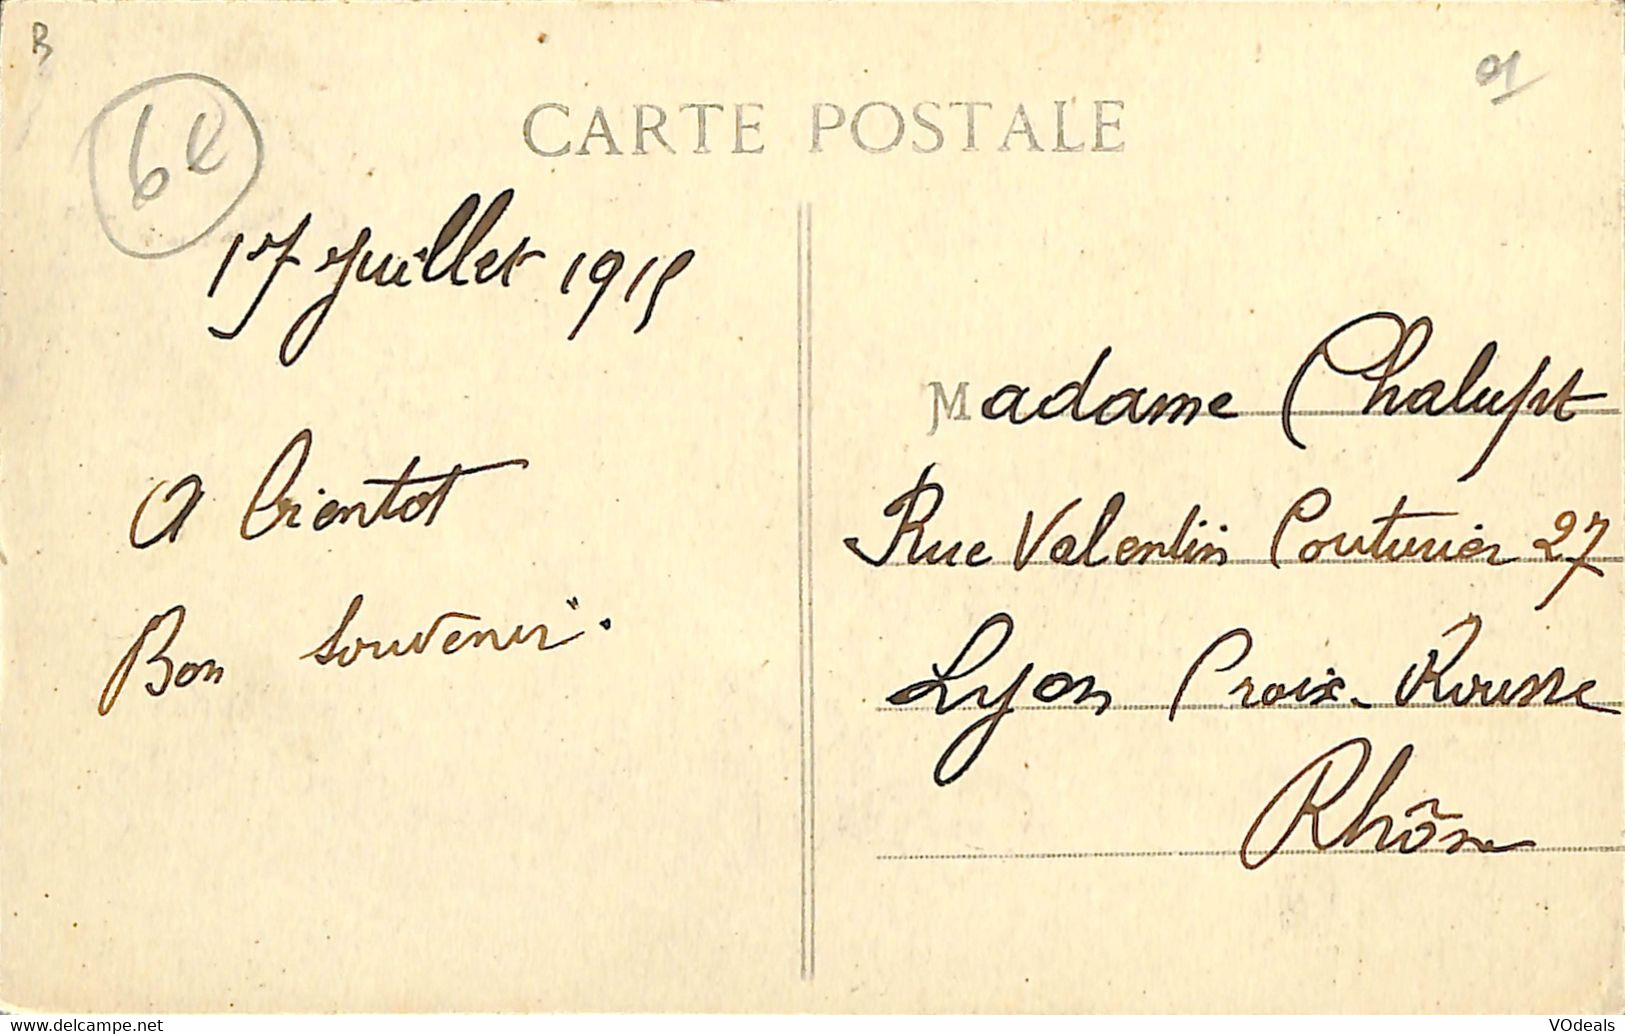 B
6e
01
CARTE POSTALE
17 Juillet 1915
A bientot
Bon souvenir.
Madame Chalupt
Rue Valentin Couturier 27
Lyon Croix-Rousse
Rhône
delcampe.net
VOdeals